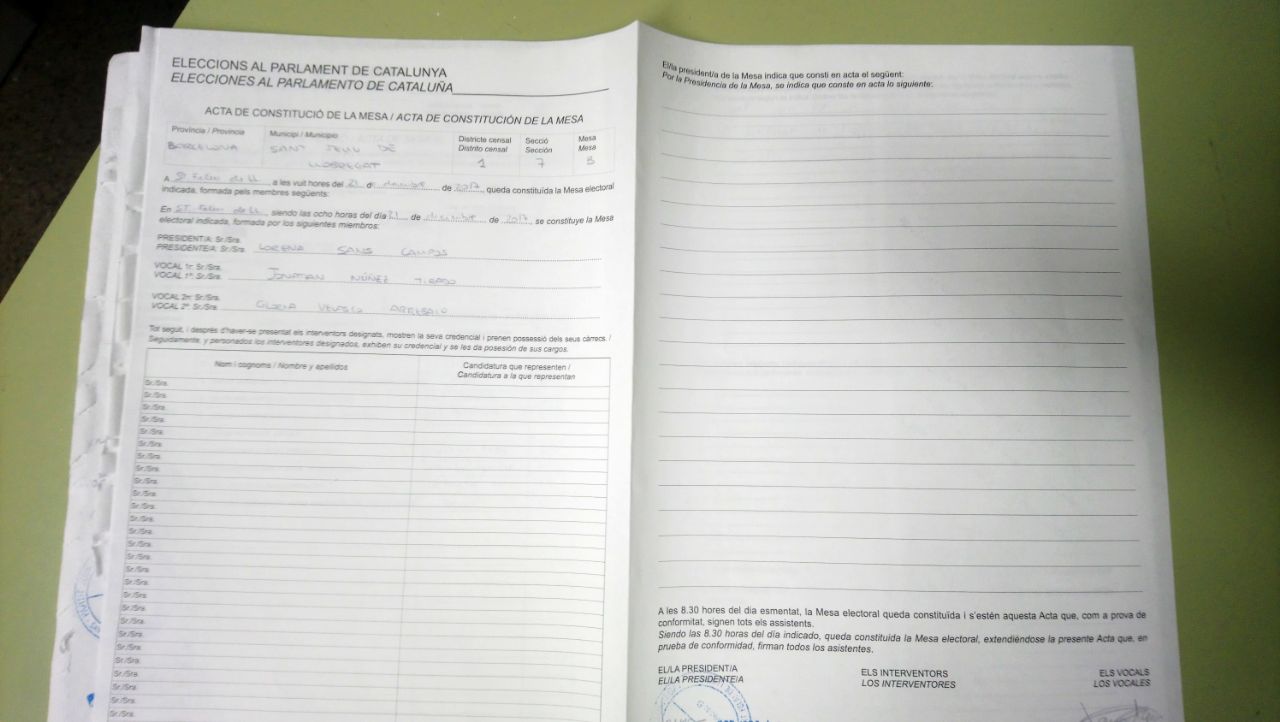 ELECCIONS AL PARLAMENT DE CATALUNYA
ELECCIONES AL PARLAMENTO DE CATALUÑA
ACTA DE CONSTITUCIÓ DE LA MESA / ACTA DE CONSTITUCIÓN DE LA MESA
Província / Provincia Municipi / Municipio Districte censal Secció Mesa
Distrito censal Sección Mesa
BARCELONA SANT FELIU DE 1 7 B
LLOBREGAT
A St Feliu de Ll, a les vuit hores del 21 de desembre de 2017 queda constituïda la Mesa electoral
indicada, formada pels membres següents:
En ST. Feliu de Ll, siendo las ocho horas del día 21 de diciembre de 2017 se constituye la Mesa
electoral indicada, formada por los siguientes miembros:
PRESIDENT/A: Sr./Sra.
PRESIDENTE/A: Sr./Sra. LORENA SANS CAMPOS
VOCAL 1r: Sr./Sra.
VOCAL 1º: Sr./Sra. JONATAN NÚÑEZ TIRADO
VOCAL 2n: Sr./Sra.
VOCAL 2º: Sr./Sra. GLORIA VELASCO
Tot seguit, i després d'haver-se presentat els interventors designats, mostren la seva credencial i prenen possessió dels seus càrrecs. /
Seguidamente, y personados los interventores designados, exhiben su credencial y se les da posesión de sus cargos.
Nom i cognoms / Nombre y apellidos Candidatura que representen /
Candidatura a la que representan
Sr./Sra.
Sr./Sra.
Sr./Sra.
Sr./Sra.
Sr./Sra.
Sr./Sra.
Sr./Sra.
Sr./Sra.
Sr./Sra.
Sr./Sra.
Sr./Sra.
Sr./Sra.
Sr./Sra.
Sr./Sra.
Sr./Sra.
Sr./Sra.
Sr./Sra.
Sr./Sra.
Sr./Sra.
Sr./Sra.
Sr./Sra.
Sr./Sra.
Sr./Sra.
Sr./Sra.
Sr./Sra.
Sr./Sra.
El/la president/a de la Mesa indica que consti en acta el següent:
Por la Presidencia de la Mesa, se indica que conste en acta lo siguiente:
A les 8.30 hores del dia esmentat, la Mesa electoral queda constituïda i s'estén aquesta Acta que, com a prova de
conformitat, signen tots els assistents.
Siendo las 8.30 horas del día indicado, queda constituida la Mesa electoral, extendiéndose la presente Acta que, en
prueba de conformidad, firman todos los asistentes.
EL/LA PRESIDENT/A ELS INTERVENTORS ELS VOCALS
EL/LA PRESIDENTE/A LOS INTERVENTORES LOS VOCALES